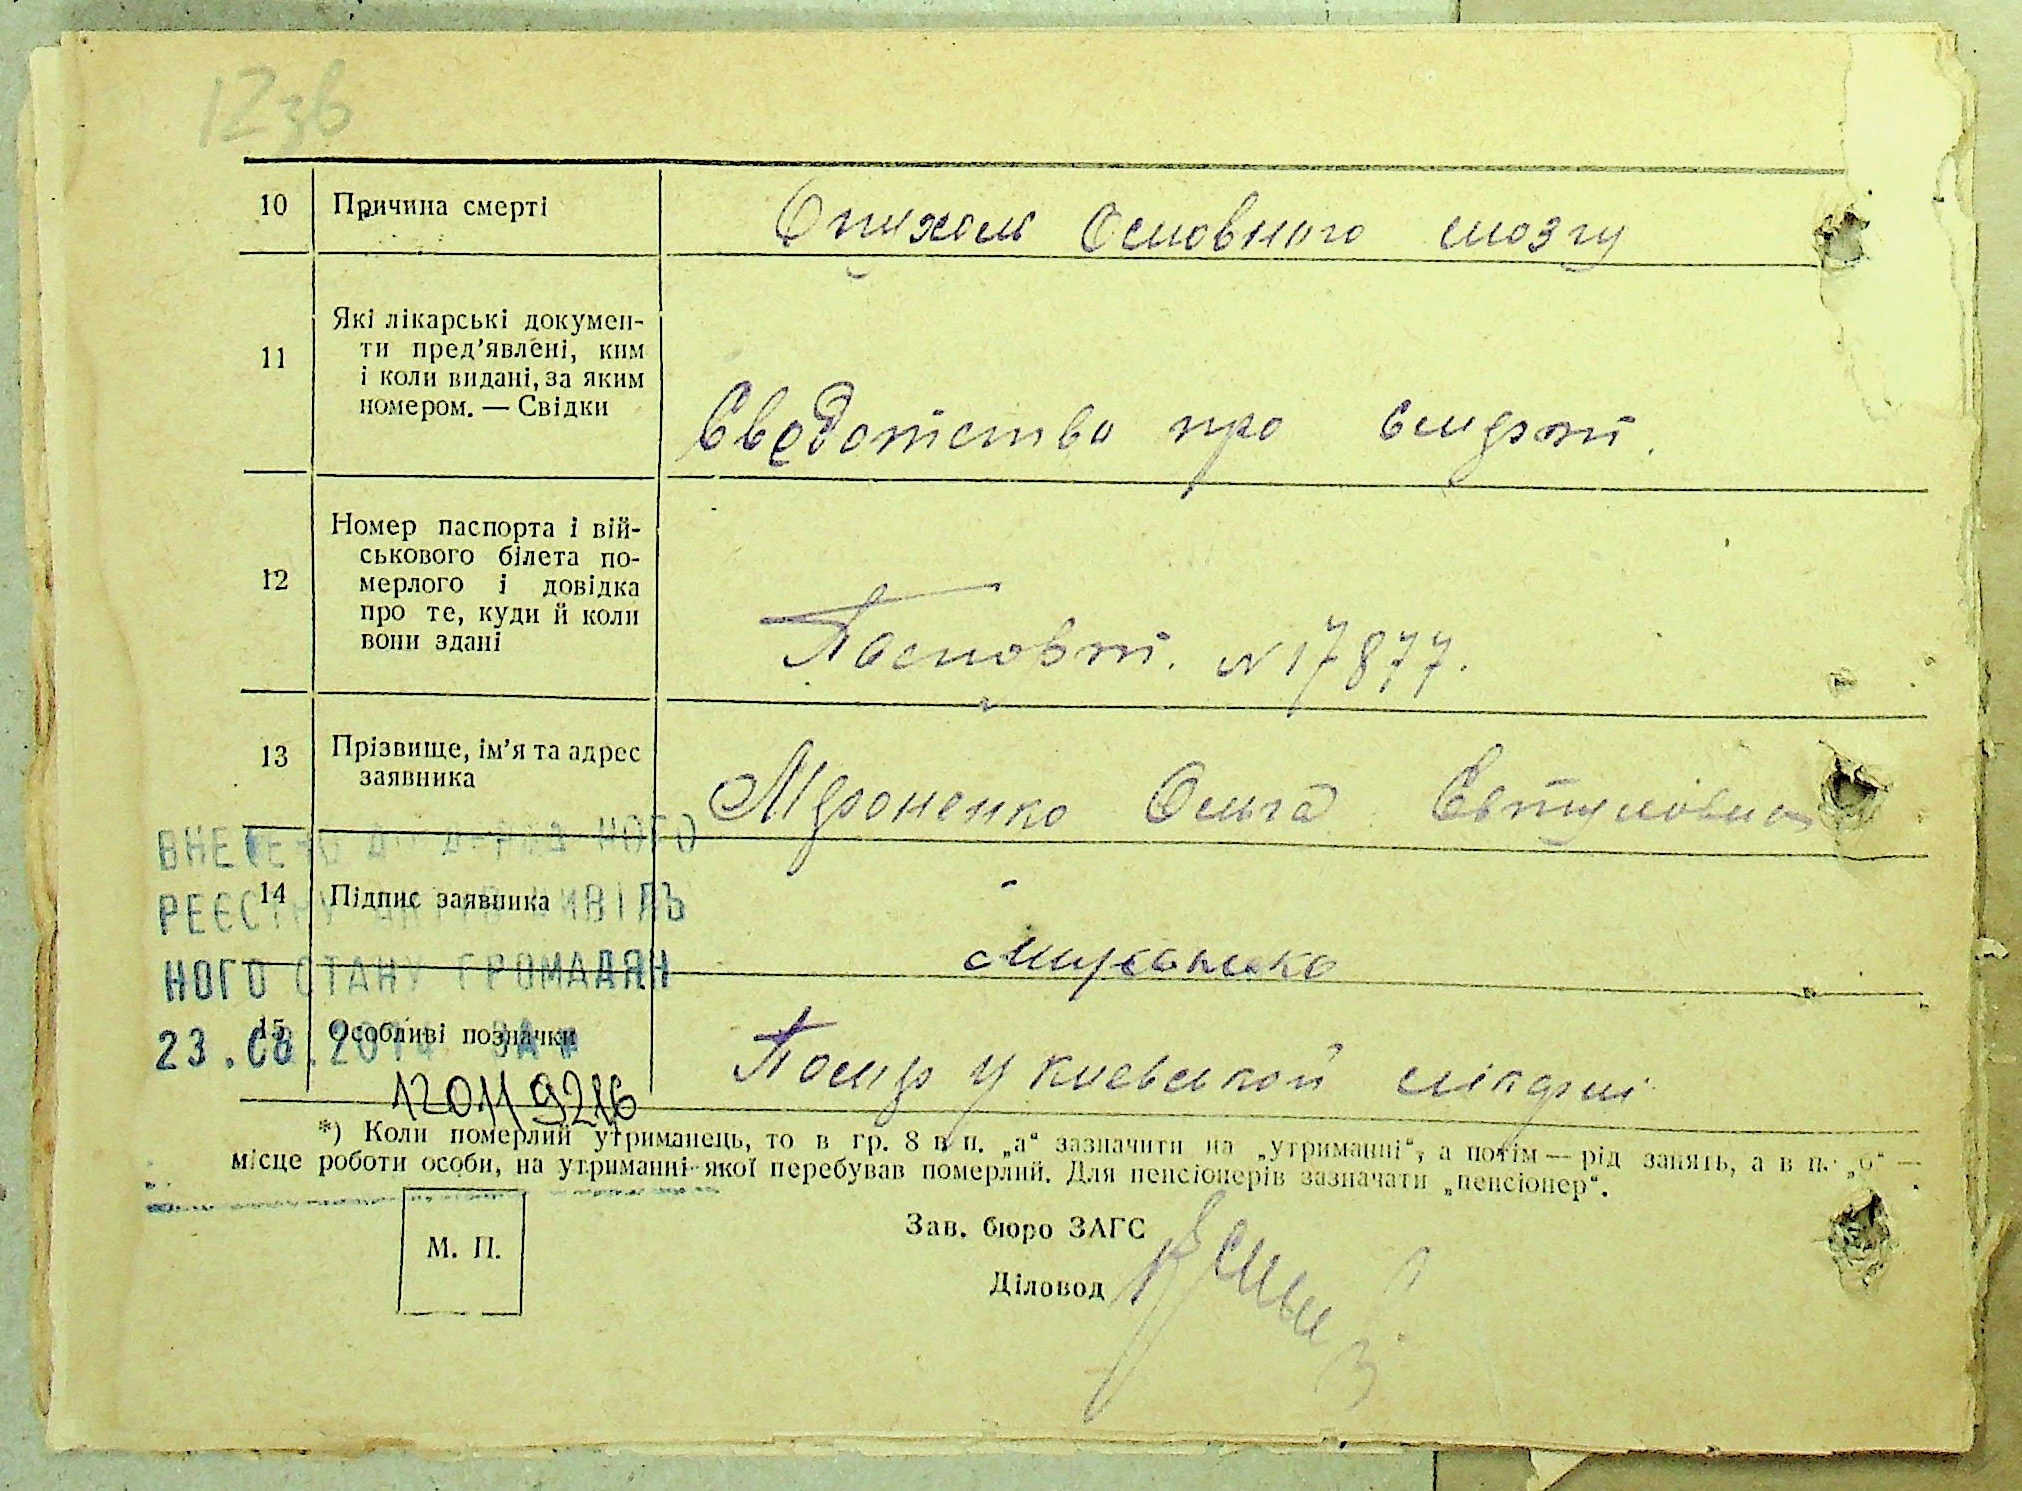 12зв
10 Причина смерті Опухом Основного мозгу
11 Які лікарські докумен-
ти пред'явлені, ким
і коли видані, за яким
номером. — Свідки
Свєдотство про смерт.
12 Номер паспорта і вій-
ськового білета по-
мерлого і довідка
про те, куди й коли
вони здані
Паспорт. N 17877.
13 Прізвище, ім'я та адрес
заявника
Міроненко Ольга
ВНЕСЕНО ДО ДЕРЖАВНОГО
РЕЄСТРУ АКТІВ ЦИВІЛЬ
14 Підпис заявника
НОГО СТАНУ ГРОМАДЯН
23.08.2014 ЗА №
15 Особливі позначки Помер у киевской
12011921б
*) Коли померлий утриманець, то в гр. 8 в п. „а“ зазначити на „утриманні“, а потім — рід занять, а в п. „б“ —
місце роботи особи, на утриманні якої перебував померлий. Для пенсіонерів зазначати „пенсіонер“.
Зав. бюро ЗАГС
М. П.
Діловод